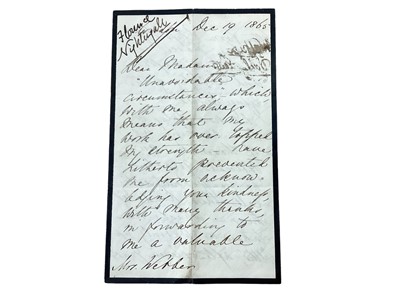 Floence
Nightingale
Dec 19 1865
Dear Madam
"Unavoidable
circumstances" which
with me always
means that my
work has over topped
my strength - have
hitherto prevented
me from acknow-
ledging your kindness,
with many thanks,
in forwarding to
me a valuable
Mrs Webber